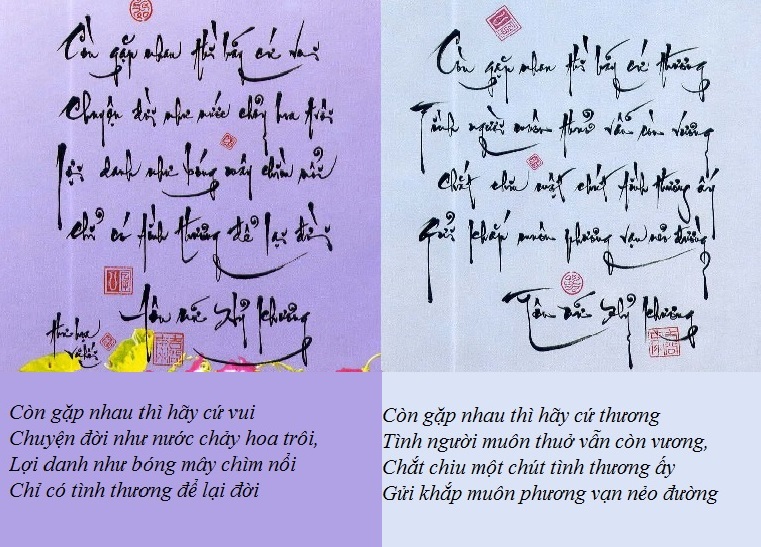 Còn gặp nhau thì hãy cứ vui
Chuyện đời như nước chảy hoa trôi
Lợi danh như bóng mây chìm nổi
Chỉ có tình thương để lại đời
Tôn Nữ Hỷ Khương
Còn gặp nhau thì hãy cứ thương
Tình người muôn thuở vẫn còn vương
Chắt chiu một chút tình thương ấy
Gửi khắp muôn phương vạn nẻo đường
Tôn Nữ Hỷ Khương
Còn gặp nhau thì hãy cứ vui
Chuyện đời như nước chảy hoa trôi,
Lợi danh như bóng mây chìm nổi
Chỉ có tình thương để lại đời
Còn gặp nhau thì hãy cứ thương
Tình người muôn thuở vẫn còn vương,
Chắt chiu một chút tình thương ấy
Gửi khắp muôn phương vạn nẻo đường